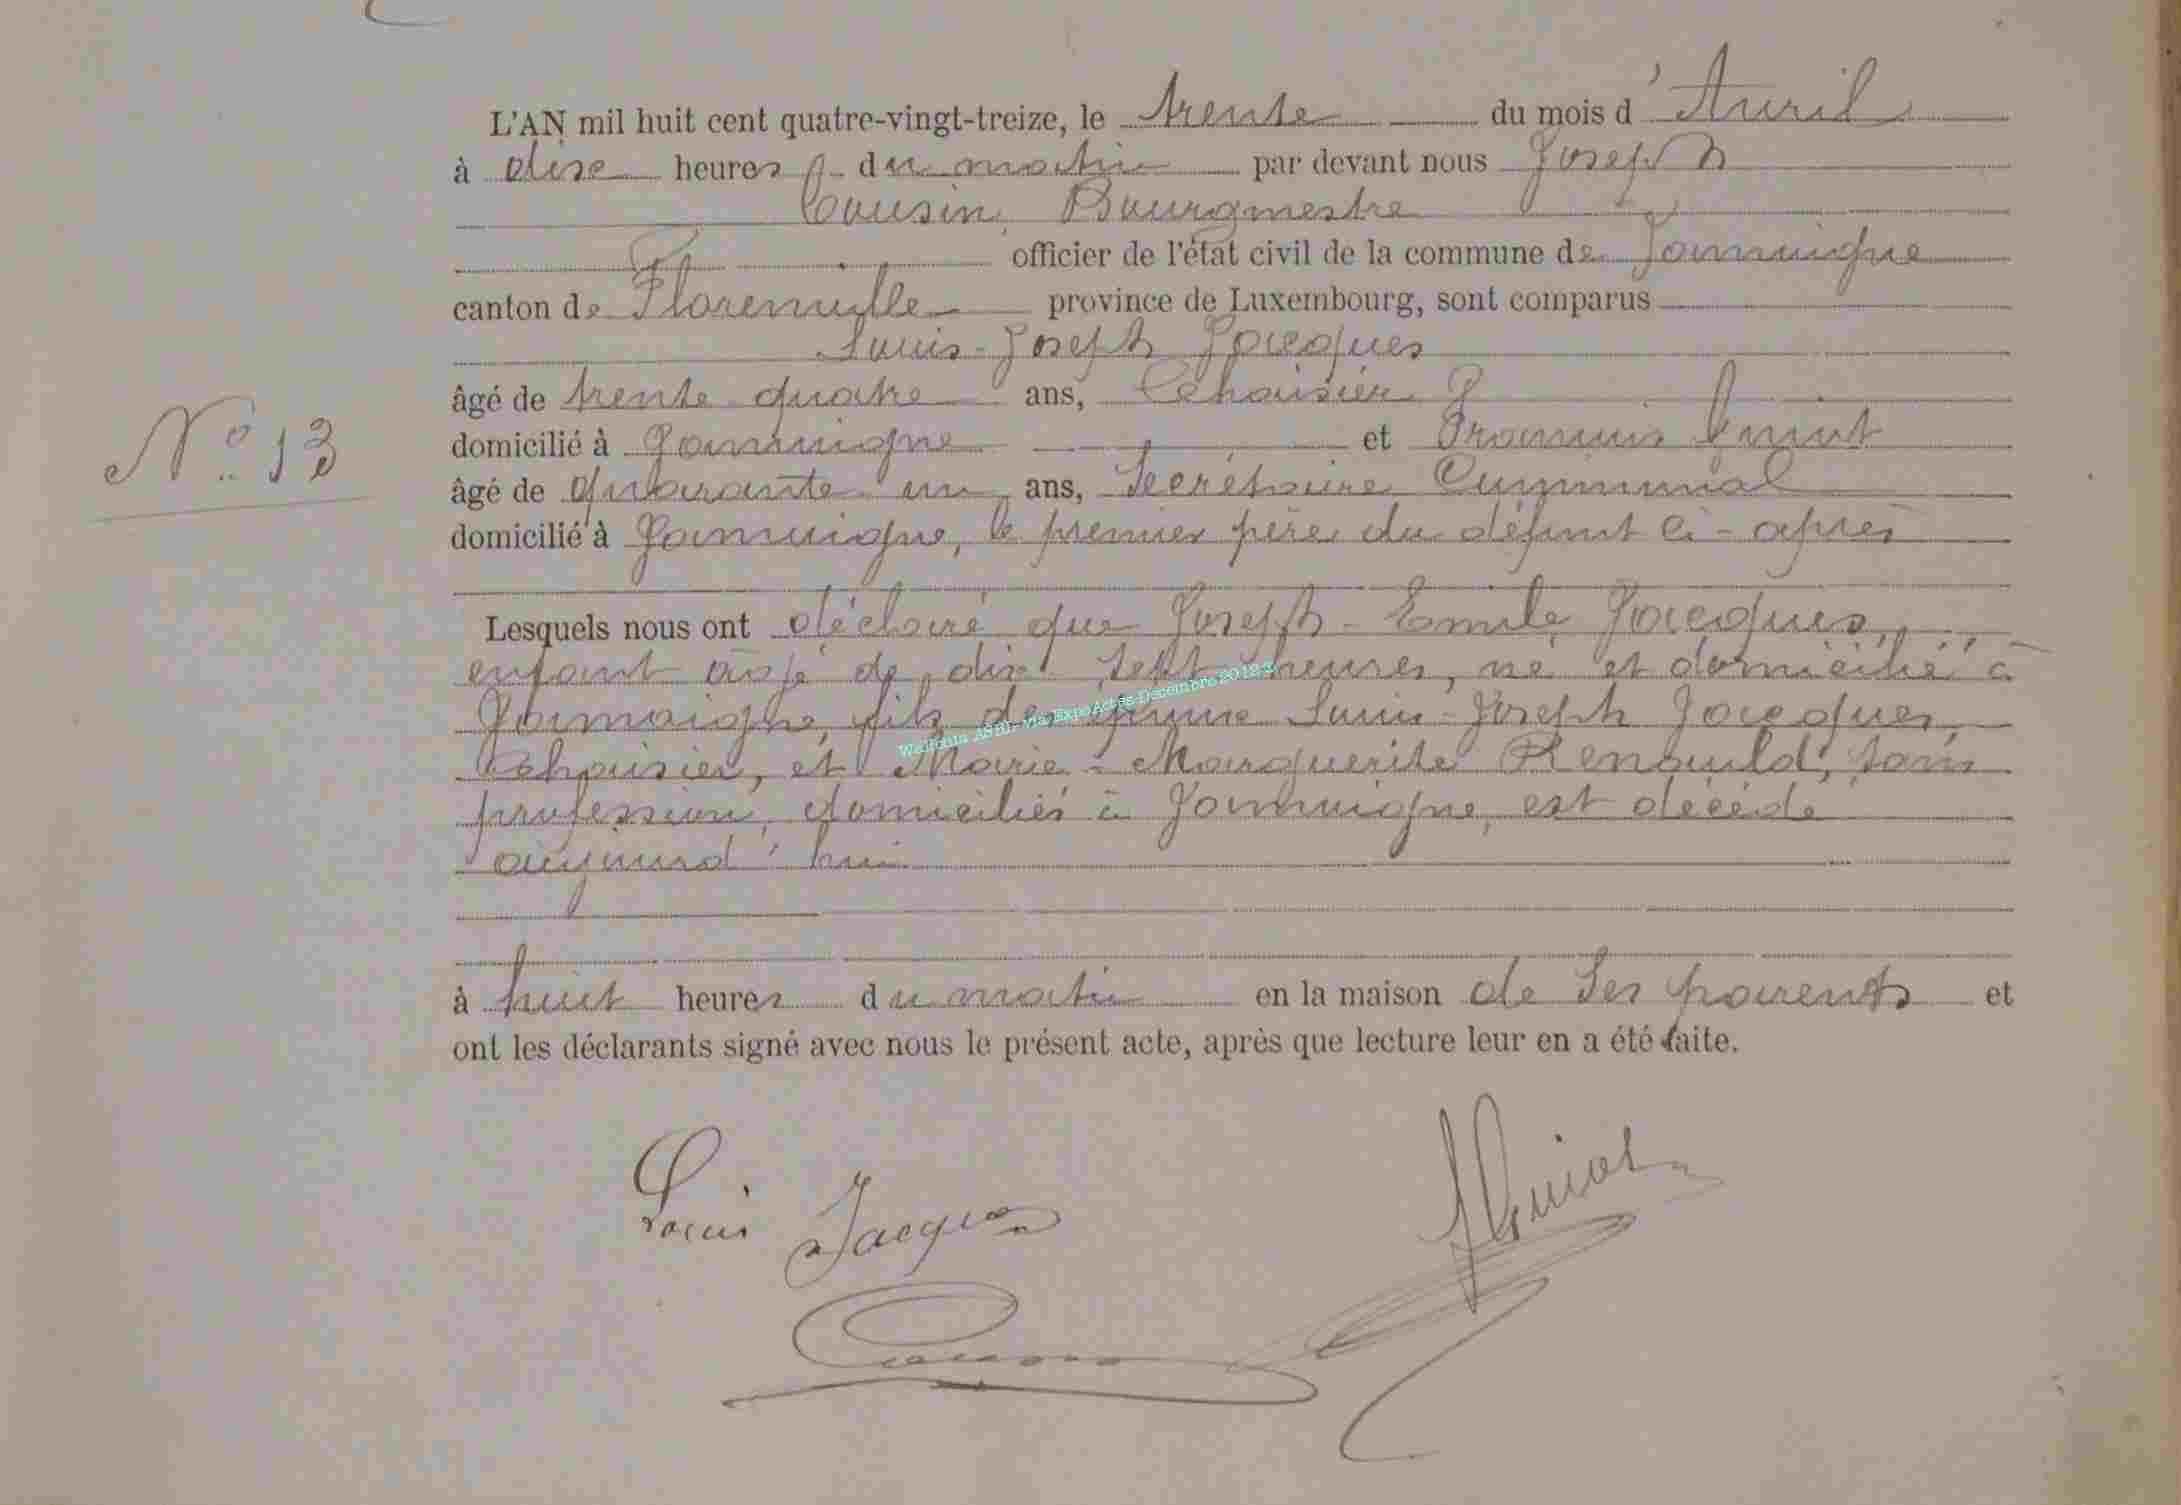 L'AN mil huit cent quatre-vingt-treize, le trente du mois d'Avril
à dix heures du matin par devant nous Joseph
Cousin, Bourgmestre
officier de l'état civil de la commune de Jamoigne
canton de Florenville province de Luxembourg, sont comparus
Louis-Joseph Jacques
âgé de trente quatre ans,
N° 13
domicilié à Jamoigne et François
âgé de quarante un ans, Secrétaire Communal
domicilié à Jamoigne, le premier père du défunt ci-après
Lesquels nous ont déclaré que Joseph-Emile Jacques,
enfant âgé de dix sept heures, né et domicilié à
Jamoigne, fils de Louis-Joseph Jacques,
et Marie-Marguerite Renauld, sans
profession, domiciliés à Jamoigne, est décédé
aujourd'hui
à huit heures du matin en la maison de ses parents et
ont les déclarants signé avec nous le présent acte, après que lecture leur en a été faite.
Louis Jacques
Cousin